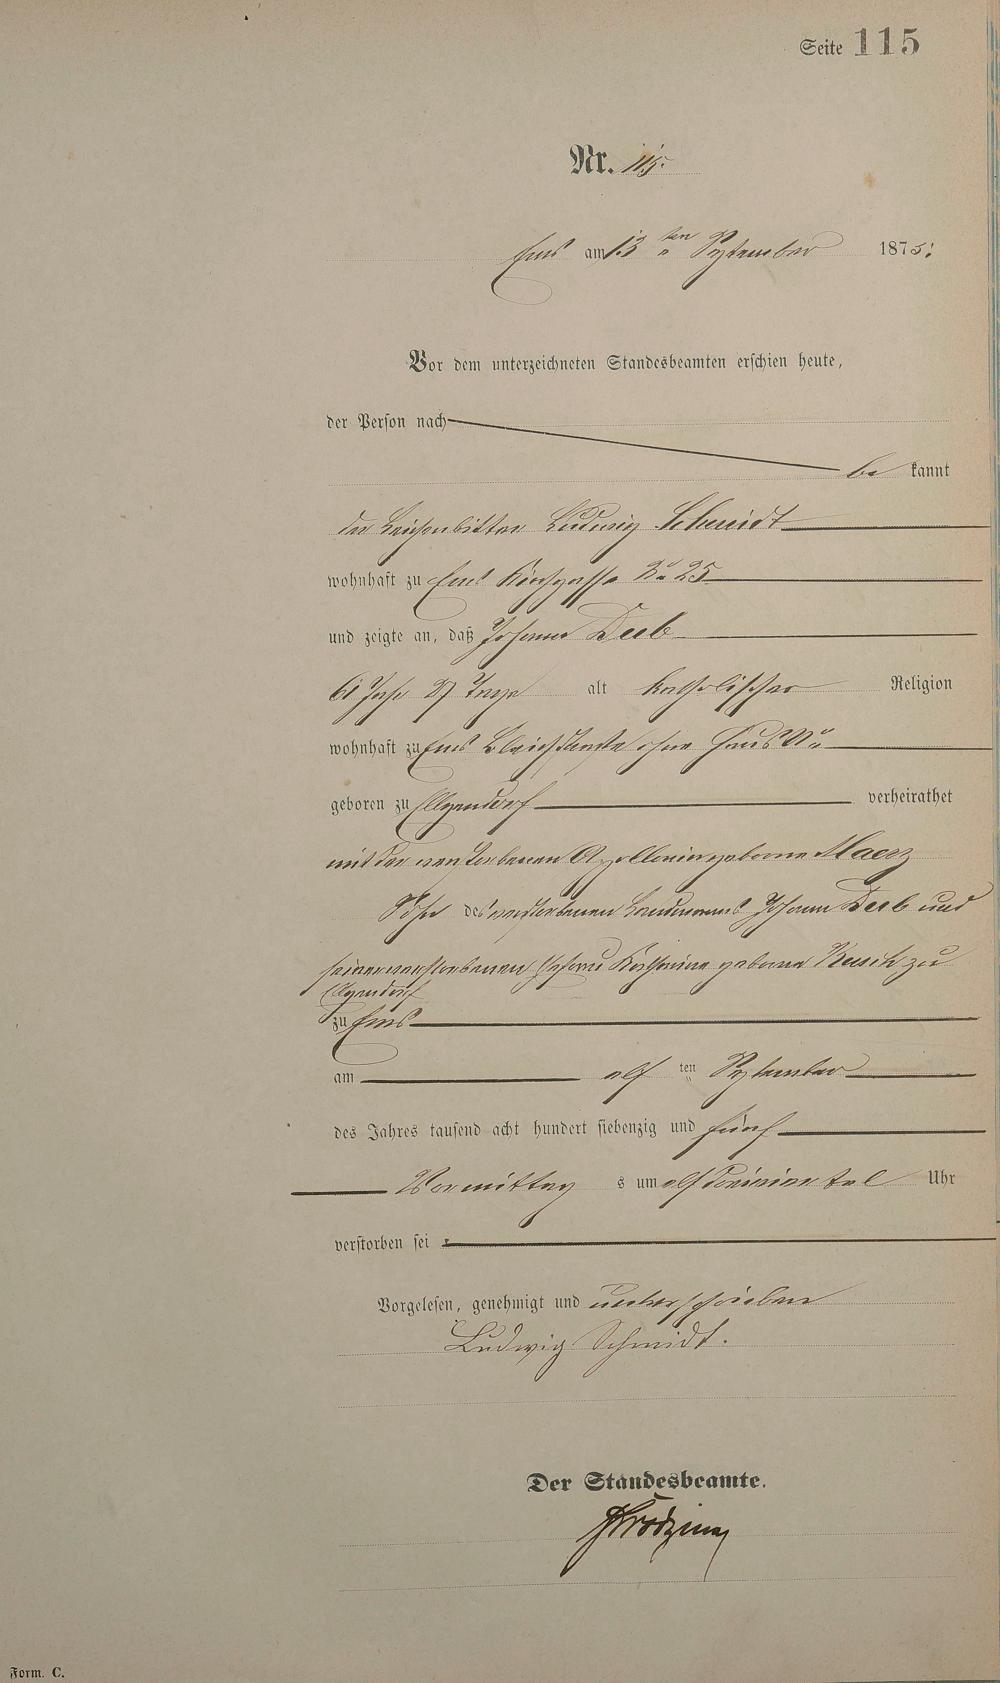 Seite 115
Nr. 115.
Ems am 13ten September 1875.
Vor dem unterzeichneten Standesbeamten erschien heute,
der Person nach
bekannt
der Leichenbitter Ludwig Schmidt
wohnhaft zu Ems Kirchgasse No 25
und zeigte an, daß Johann Deeb
61 Jahr 27 Tage alt katholischer Religion
wohnhaft zu Ems Bleichstraße ohne Haus No
geboren zu Ellgendorf verheirathet
mit der verstorbenen Apollonia geborne Maerz
Sohn des verstorbenen Landmanns Johann Deeb und
seiner verstorbenen Ehefrau Katharina geborne Rusch zu
Elgendorf
zu Ems
am elf ten September
des Jahres tausend acht hundert siebenzig und fünf
Vormittag s um elf dreiviertel Uhr
verstorben sei.
Vorgelesen, genehmigt und unterschrieben
Ludwig Schmidt.
Der Standesbeamte.
Form. C.